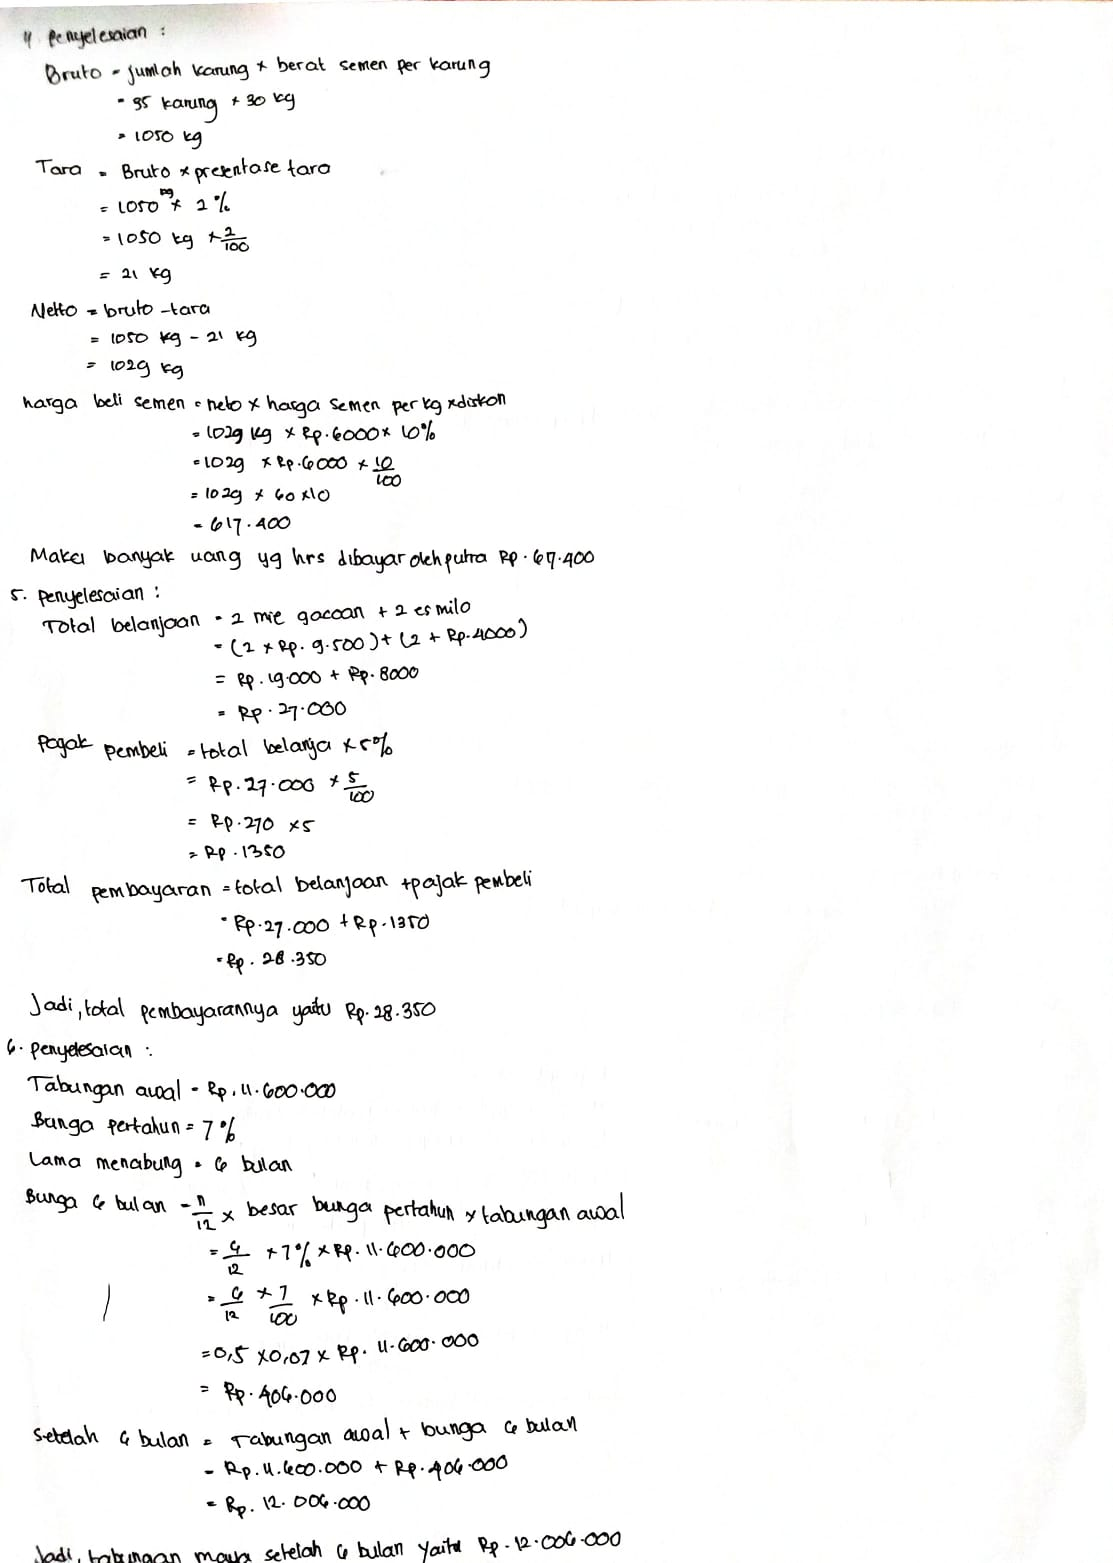 4. Penyelesaian :
Bruto = jumlah karung x berat semen per karung
= 35 karung x 30 kg
= 1050 kg
Tara = Bruto x presentase tara
= 1050 kg x 2 %
= 1050 kg x 2/100
= 21 kg
Netto = bruto - tara
= 1050 kg - 21 kg
= 1029 kg
harga beli semen = neto x harga semen per kg x diskon
= 1029 kg x Rp. 6000 x 10%
= 1029 x Rp. 6000 x 10/100
= 1029 x 60 x 10
= 617.400
Maka banyak uang yg hrs dibayar oleh putra Rp. 617.400
5. Penyelesaian :
Total belanjaan = 2 mie gacoan + 2 es milo
= (2 x Rp. 9.500) + (2 + Rp. 4000)
= Rp. 19.000 + Rp. 8000
= Rp. 27.000
Pajak pembeli = total belanja x 5%
= Rp. 27.000 x 5/100
= Rp. 270 x 5
= Rp. 1350
Total pembayaran = total belanjaan + pajak pembeli
= Rp. 27.000 + Rp. 1350
= Rp. 28.350
Jadi, total pembayarannya yaitu Rp. 28.350
6. Penyelesaian :
Tabungan awal = Rp. 11.600.000
Bunga pertahun = 7%
Lama menabung = 6 bulan
Bunga 6 bulan = n/12 x besar bunga pertahun x tabungan awal
= 6/12 x 7% x Rp. 11.600.000
= 6/12 x 7/100 x Rp. 11.600.000
= 0,5 x 0,07 x Rp. 11.600.000
= Rp. 406.000
Setelah 6 bulan = Tabungan awal + bunga 6 bulan
= Rp. 11.600.000 + Rp. 406.000
= Rp. 12.006.000
Jadi, tabungan maya setelah 6 bulan yaitu Rp. 12.006.000